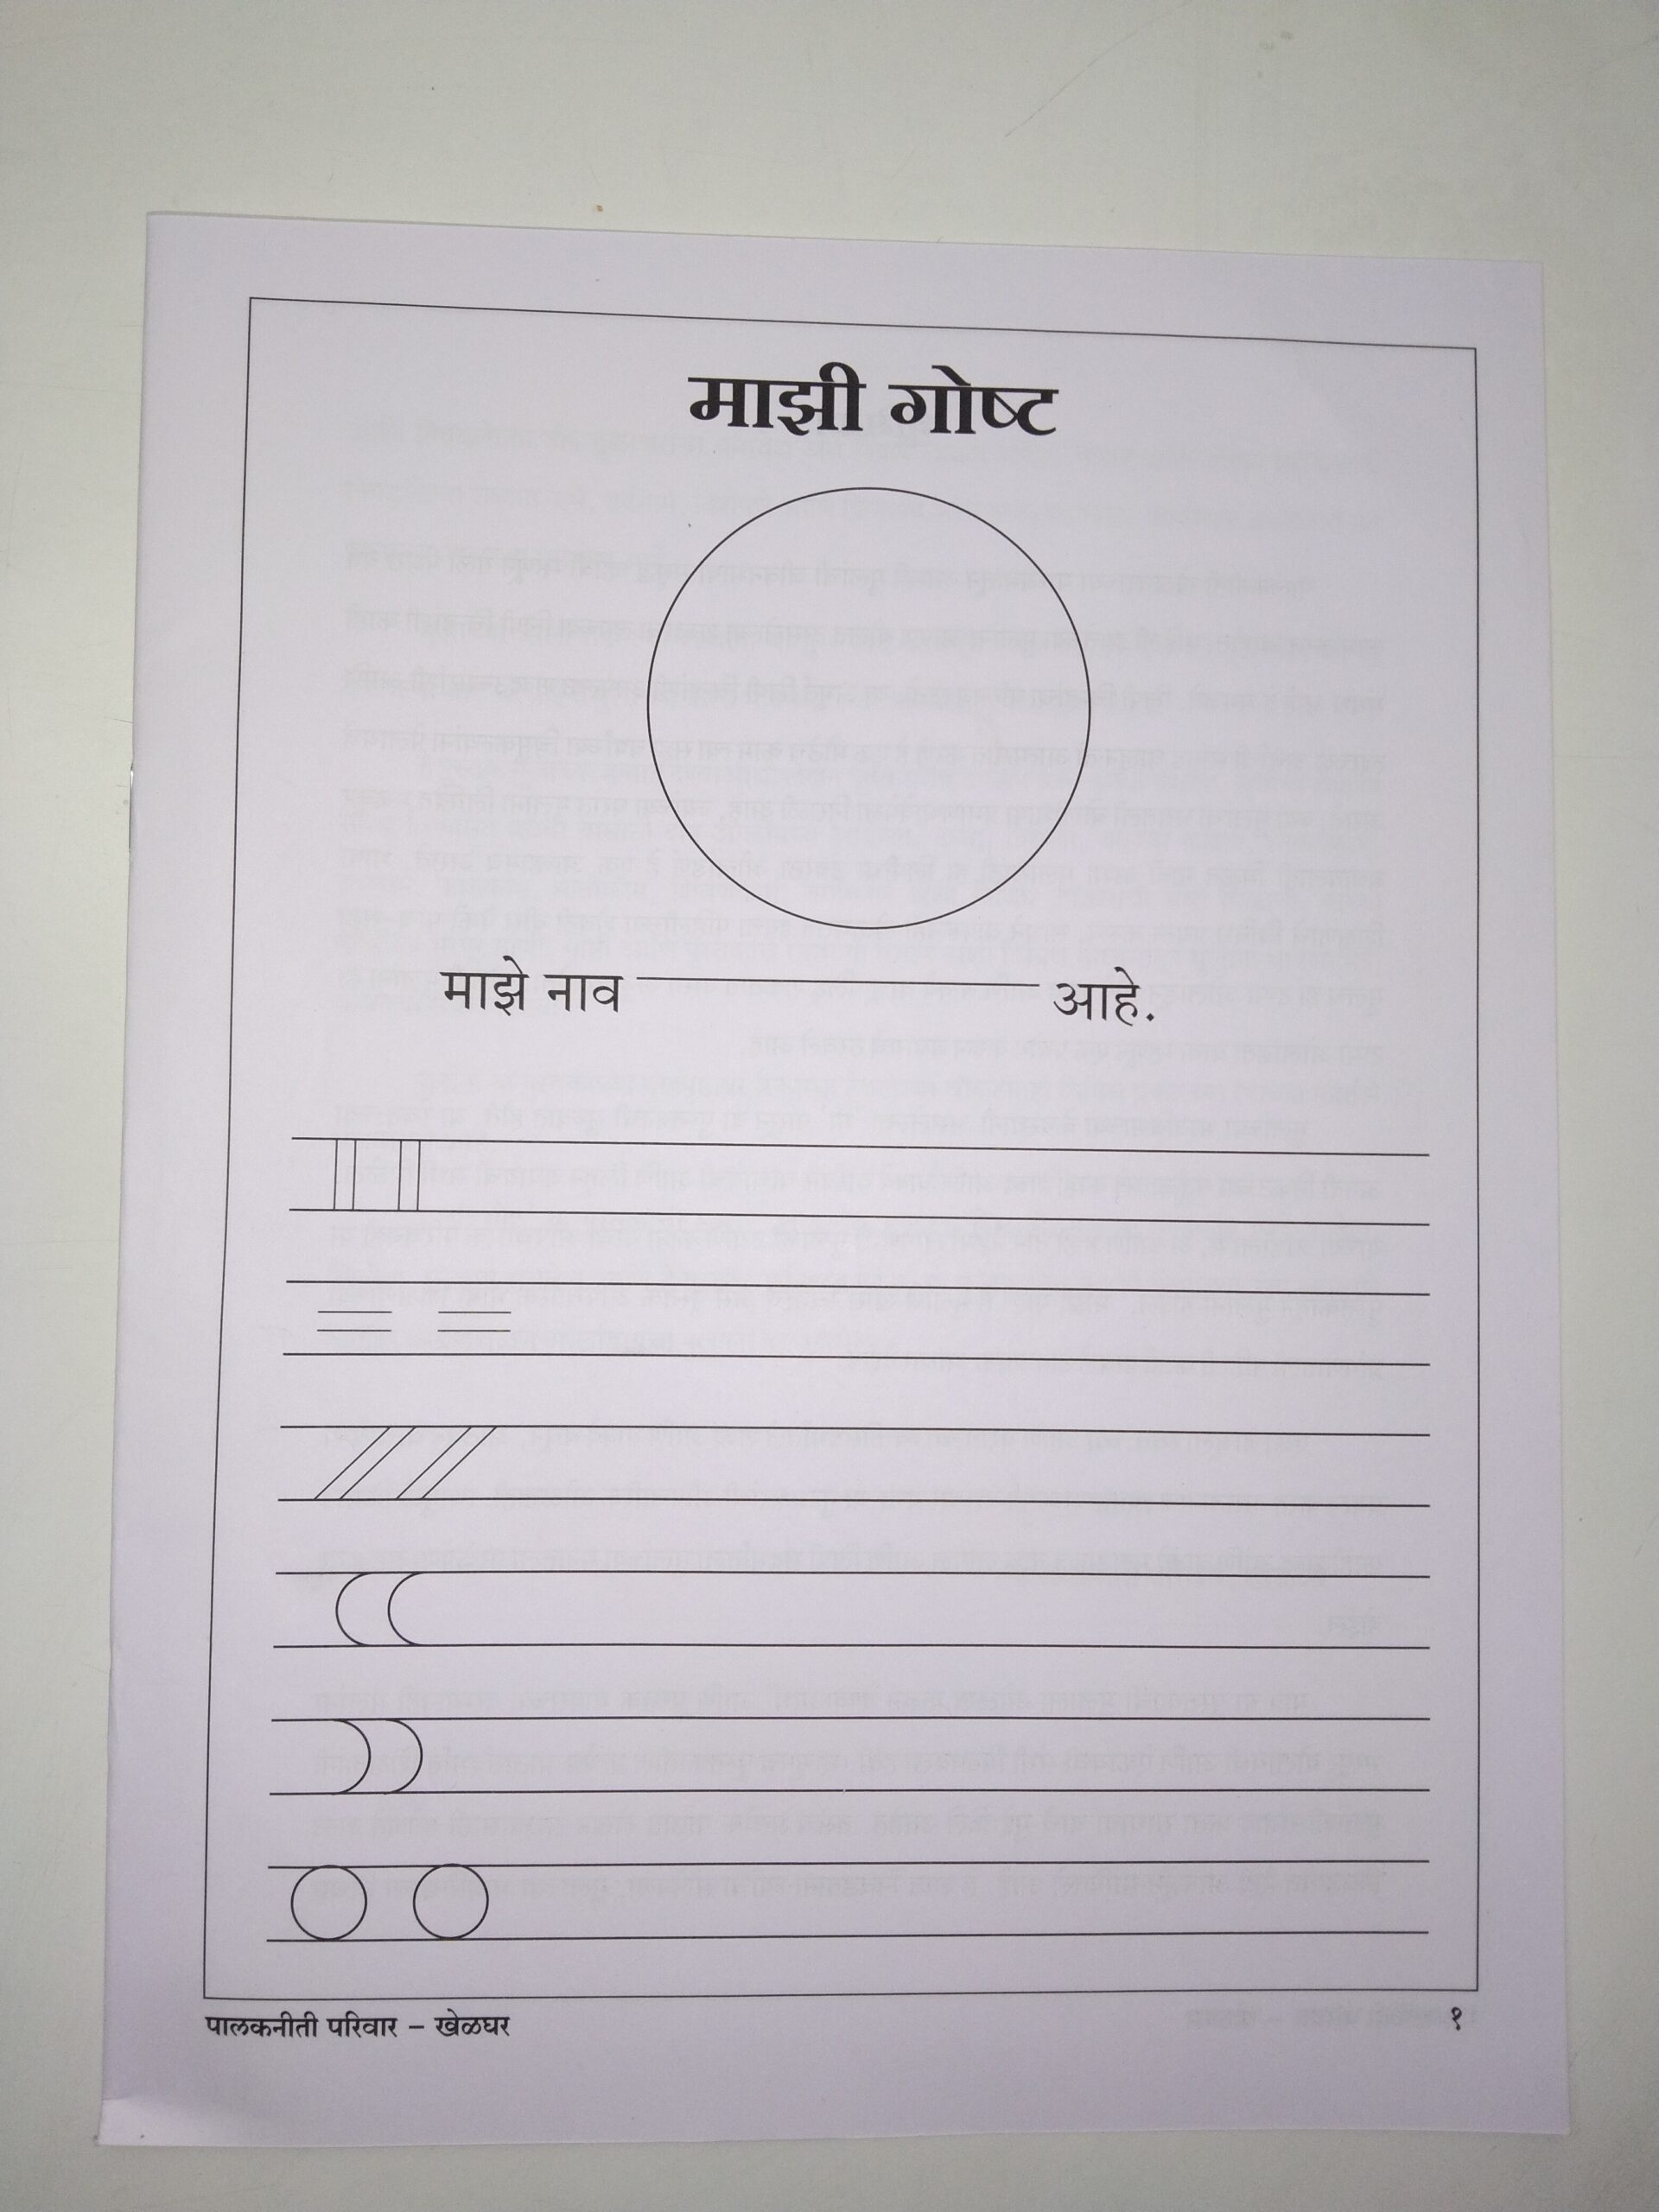 माझी गोष्ट
माझे नाव ____________ आहे.
पालकनीती परिवार – खेळघर
१